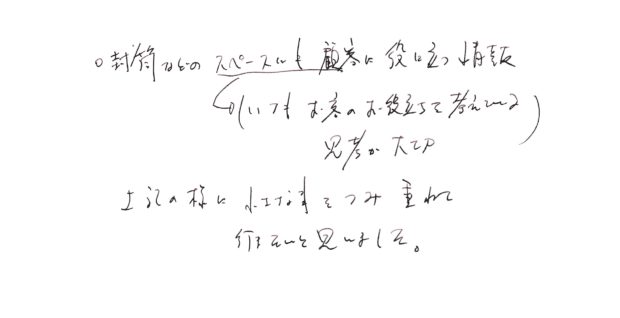 ○封筒などのスペースにも顧客に役に立つ情報
(いつもお客のお役立ちを考えている)
思考が大切
上記の様に小さな事をつみ重ねて
行きたいと思いました。